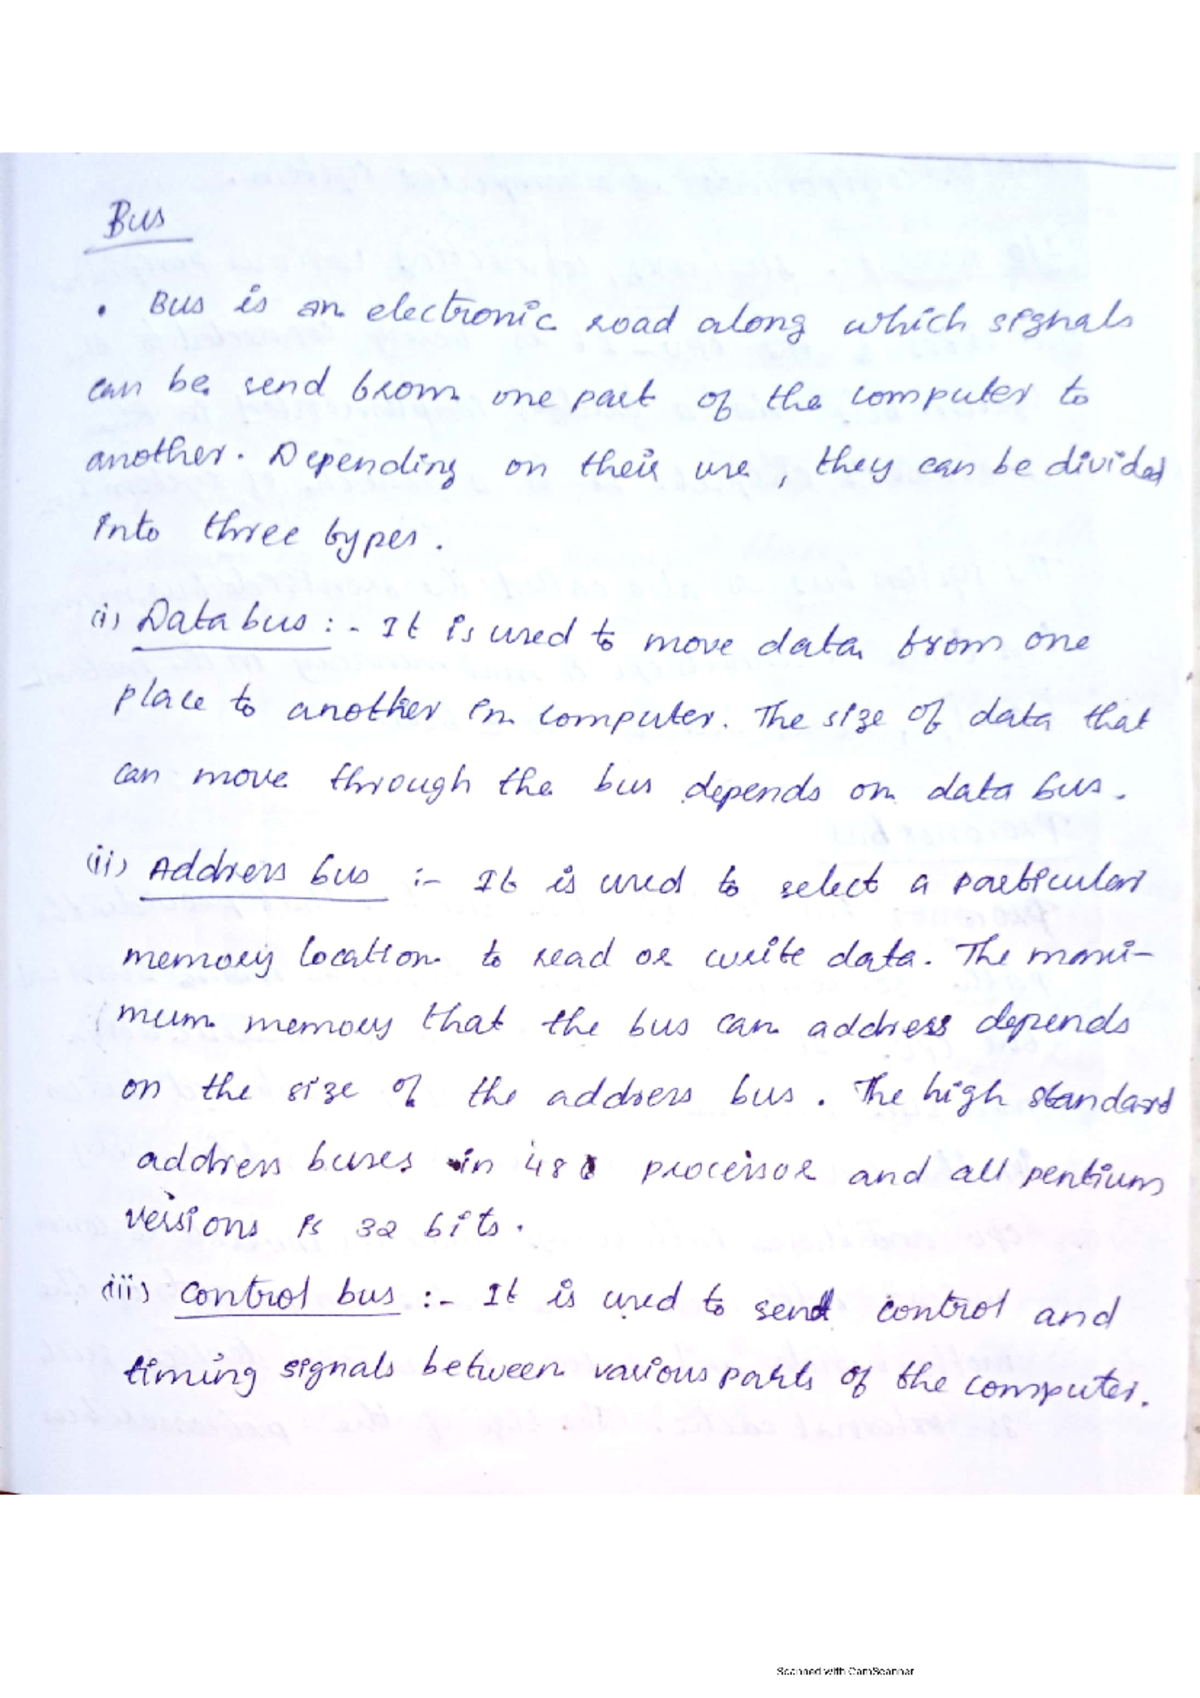 Bus
• Bus is an electronic road along which signals
can be send from one part of the computer to
another. Depending on their use, they can be divided
into three types.
(i) Data bus :- It is used to move data from one
place to another in computer. The size of data that
can move through the bus depends on data bus.
(ii) Address bus :- It is used to select a particular
memory location to read or write data. The maxi-
mum memory that the bus can address depends
on the size of the address bus. The high standard
address buses in processor and all pentium
versions is 32 bits.
(iii) control bus :- It is used to send control and
timing signals between various parts of the computer.
Scanned with CamScanner